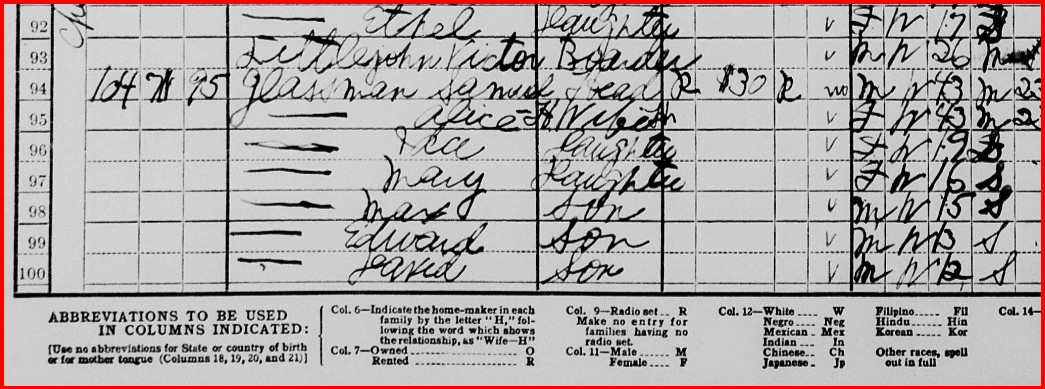 92 — Ethel Daughter v F W 17 S
93 Littlejohn Victor Boarder v M W 26 M
94 104 71 95 Glassman Samuel Head R $30 R no M W 43 M 23
95 — Alice-H Wife-H v F W 43 M 23
96 — Daughter v F W 19 S
97 — Mary Daughter v F W 16 S
98 — Max Son v M W 15 S
99 — Edward Son v M W 13 S
100 — David Son v M W 12 S
ABBREVIATIONS TO BE USED
IN COLUMNS INDICATED:
[Use no abbreviations for State or country of birth
or for mother tongue (Columns 18, 19, 20, and 21)]
Col. 6—Indicate the home-maker in each
family by the letter "H," fol-
lowing the word which shows
the relationship, as "Wife—H"
Col. 7—Owned O
Rented R
Col. 9—Radio set R
Make no entry for
families having no
radio set.
Col. 11—Male M
Female F
Col. 12—White W
Negro Neg
Mexican Mex
Indian In
Chinese Ch
Japanese Jp
Filipino Fil
Hindu Hin
Korean Kor
Other races, spell
out in full
Col. 14—